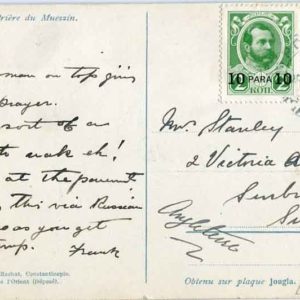 Prière du Muezzin.
man on top giving
prayer.
sort of a
to wake eh!
at the
this via Russian
as you get
Frank
10 PARA 10
2 КОП 2
Mr Stanley
2 Victoria
Surbi
Su
Angleterre
Rochat, Constantinople.
l'Orient (Déposé).
Obtenu sur plaque Jougla.